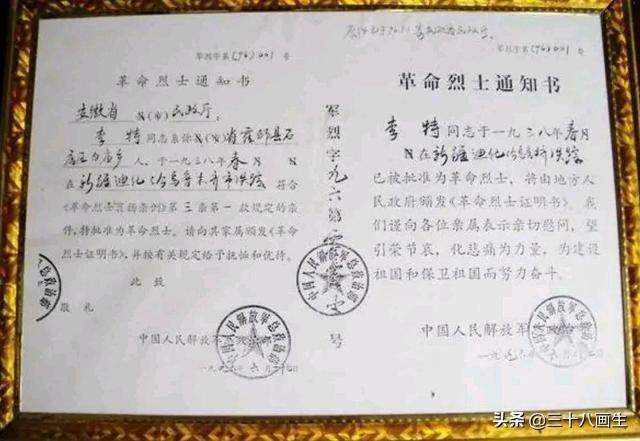 军烈字第(96)001 号
革命烈士通知书
安徽省 (市)民政厅:
李 特同志系你 省霍邱县石
人,于一九三八年春月
在新疆迪化(乌鲁木齐市)失踪 符合
《革命烈士褒扬条例》第三条第一款规定的条
件,特批准为革命烈士。请向其家属颁发《革命
烈士证明书》,并按有关规定给予抚恤和优待。
此 致
敬 礼
中国人民解放军总政治部
一九九六年六月
军烈字九六第 号
中国人民解放军总政治部
军烈字第(96)001 号
革命烈士通知书
李 特同志于一九三八年春月
在新疆迪化(乌鲁木齐)失踪
已被批准为革命烈士,将由地方人
民政府颁发《革命烈士证明书》。我
们谨向各位亲属表示亲切慰问,望
引荣节哀,化悲痛为力量,为建设
祖国和保卫祖国而努力奋斗。
中国人民解放军总政治部
一九九六年六月
头条 @三十八画生